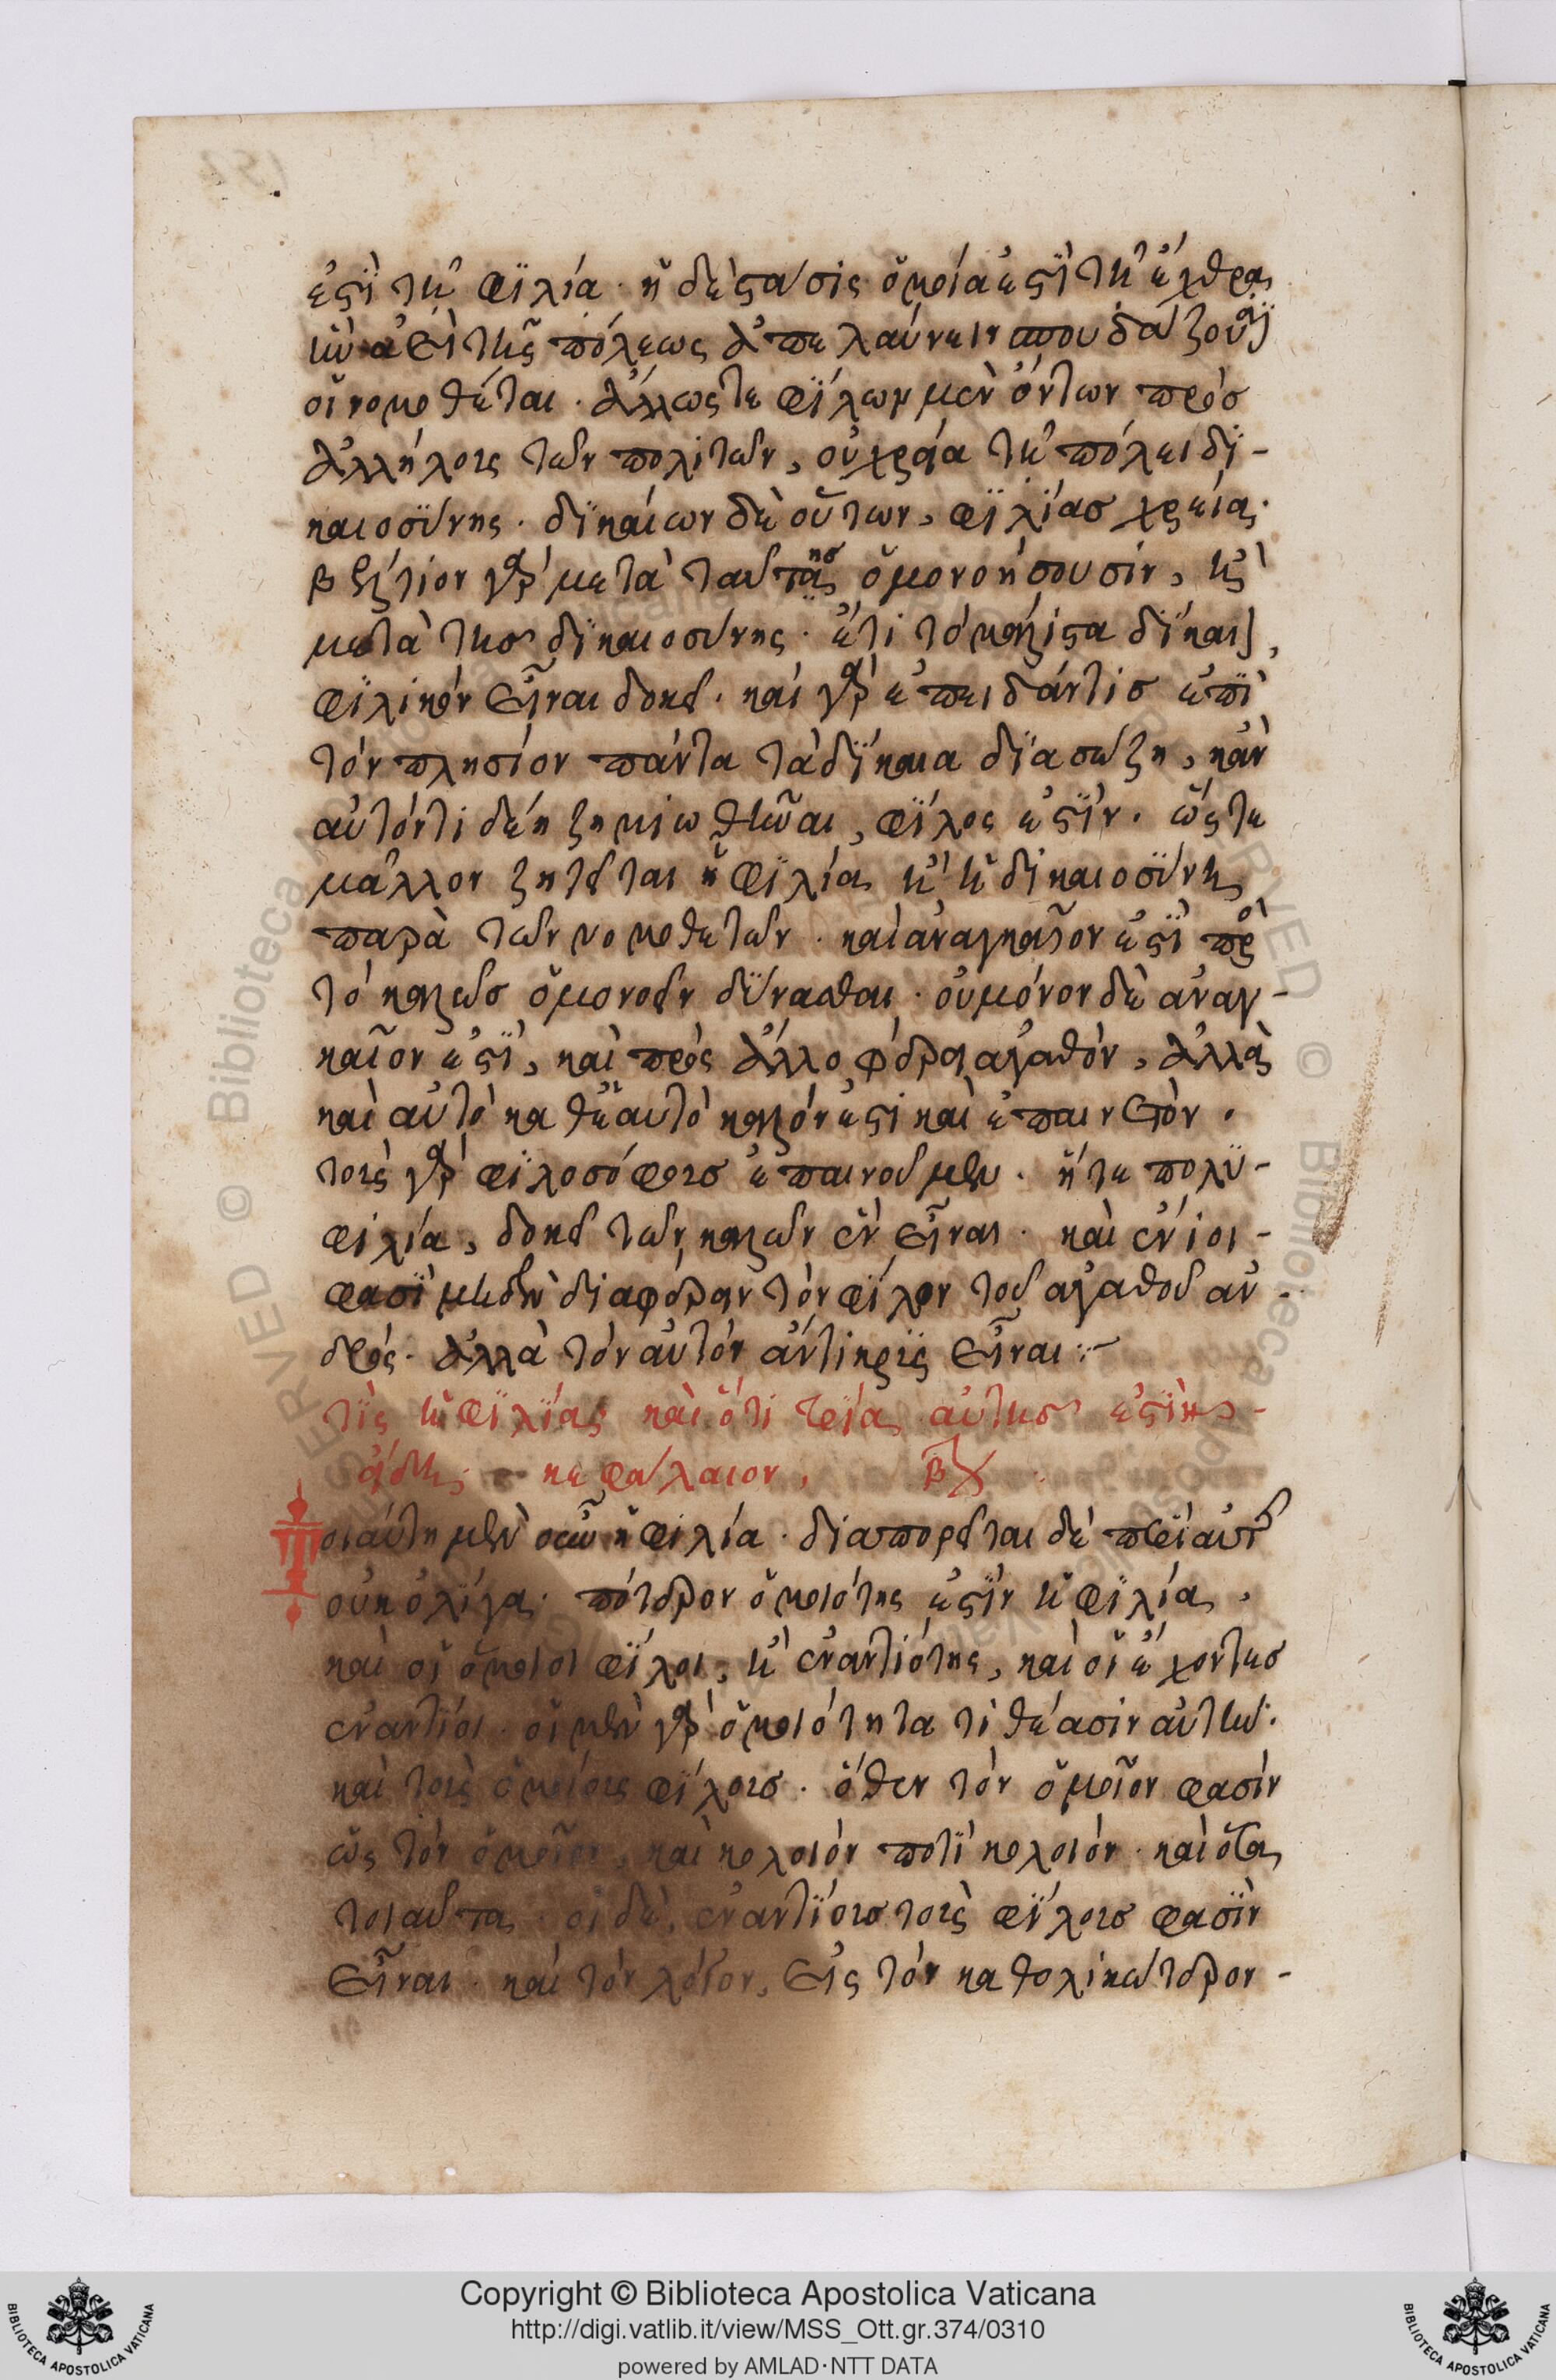 ἐστὶ τῇ φιλία· ἡ δὲ στάσις ὁμοία ἐστὶ τῇ ἔχθρα
ἣν ἀεὶ τῆς πόλεως ἀπελαύνειν σπουδάζουσιν
οἱ νομοθέται. ἄλλως τε φίλων μὲν ὄντων πρὸς
ἀλλήλοις τῶν πολιτῶν, οὐ χρεία τῇ πόλει δι-
καιοσύνης· δικαίων δὲ οὕτων, φιλίας χρεία·
βέλτιον γὰρ μετὰ ταύτης ὁμονοήσουσιν, ἢ
μετὰ τῆς δικαιοσύνης· ἔτι τὸ μάλιστα δίκαιον,
φιλικὸν εἶναι δοκεῖ· καὶ γὰρ ἐπειδάν τις ἐπὶ
τὸν πλησίον πάντα τὰ δίκαια διασώζη, κἂν
αὐτόν τι δέη ζημιωθῆναι, φίλος ἐστίν. ὥστε
μᾶλλον ζητεῖται ἡ φιλία ἢ ἡ δικαιοσύνη
παρὰ τῶν νομοθετῶν. καὶ ἀναγκαῖον ἐστὶ πρὸς
τὸ καλῶς ὁμονοεῖν δύνασθαι· οὐ μόνον δὲ ἀναγ-
καῖον ἐστὶ, καὶ πρὸς ἄλλο φέρει ἀγαθὸν, ἀλλὰ
καὶ αὐτὸ καθ' ἑαυτὸ καλόν ἐστι καὶ ἐπαινετόν.
τοὺς γὰρ φιλοσόφοις ἐπαινοῦμεν· ἥ τε πολυ-
φιλία, δοκεῖ τῶν καλῶν ἓν εἶναι· καὶ ἔνιοι-
φασὶ μηδὲν διαφέρειν τὸν φίλον τοῦ ἀγαθοῦ ἀν-
δρός· ἀλλὰ τὸν αὐτὸν ἀντικρὺς εἶναι:~
τίς ἡ φιλία καὶ ὅτι τρία αὐτῆς ἐστὶν-
εἴδη κεφάλαιον, β
Τοιαύτη μὲν οὖν ἡ φιλία· διαπορεῖται δὲ περὶ αὐτῆς
οὐκ ὀλίγα· πότερον ὁμοιότης ἐστὶν ἡ φιλία,
καὶ οἱ ὅμοιοι φίλοι, ἢ ἐναντιότης, καὶ οἱ ἔχοντες
ἐναντίοι· οἱ μὲν γὰρ ὁμοιότητα τιθέασιν αὐτήν·
καὶ τοὺς ὁμοίοις φίλοις· ὅθεν τὸν ὁμοῖον φασὶν
ὡς τὸν ὁμοῖον, καὶ κολοιὸν ποτὶ κολοιόν· καὶ ὅσα
τοιαῦτα· οἱ δὲ, ἐναντίοις τοὺς φίλοις φασὶν
εἶναι· καὶ τὸν λόγον, εἰς τὸν καθολικώτερον-
Copyright © Biblioteca Apostolica Vaticana
http://digi.vatlib.it/view/MSS_Ott.gr.374/0310
powered by AMLAD·NTT DATA